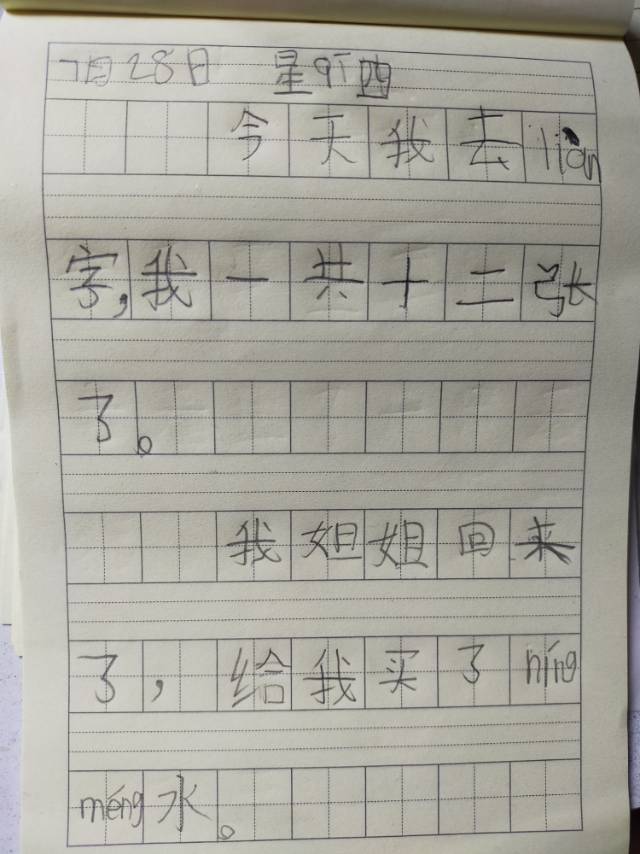 7月28日 星qī四
今天我去liàn
字,我一共十二张
了。
我姐姐回来
了,给我买了níng
méng水。